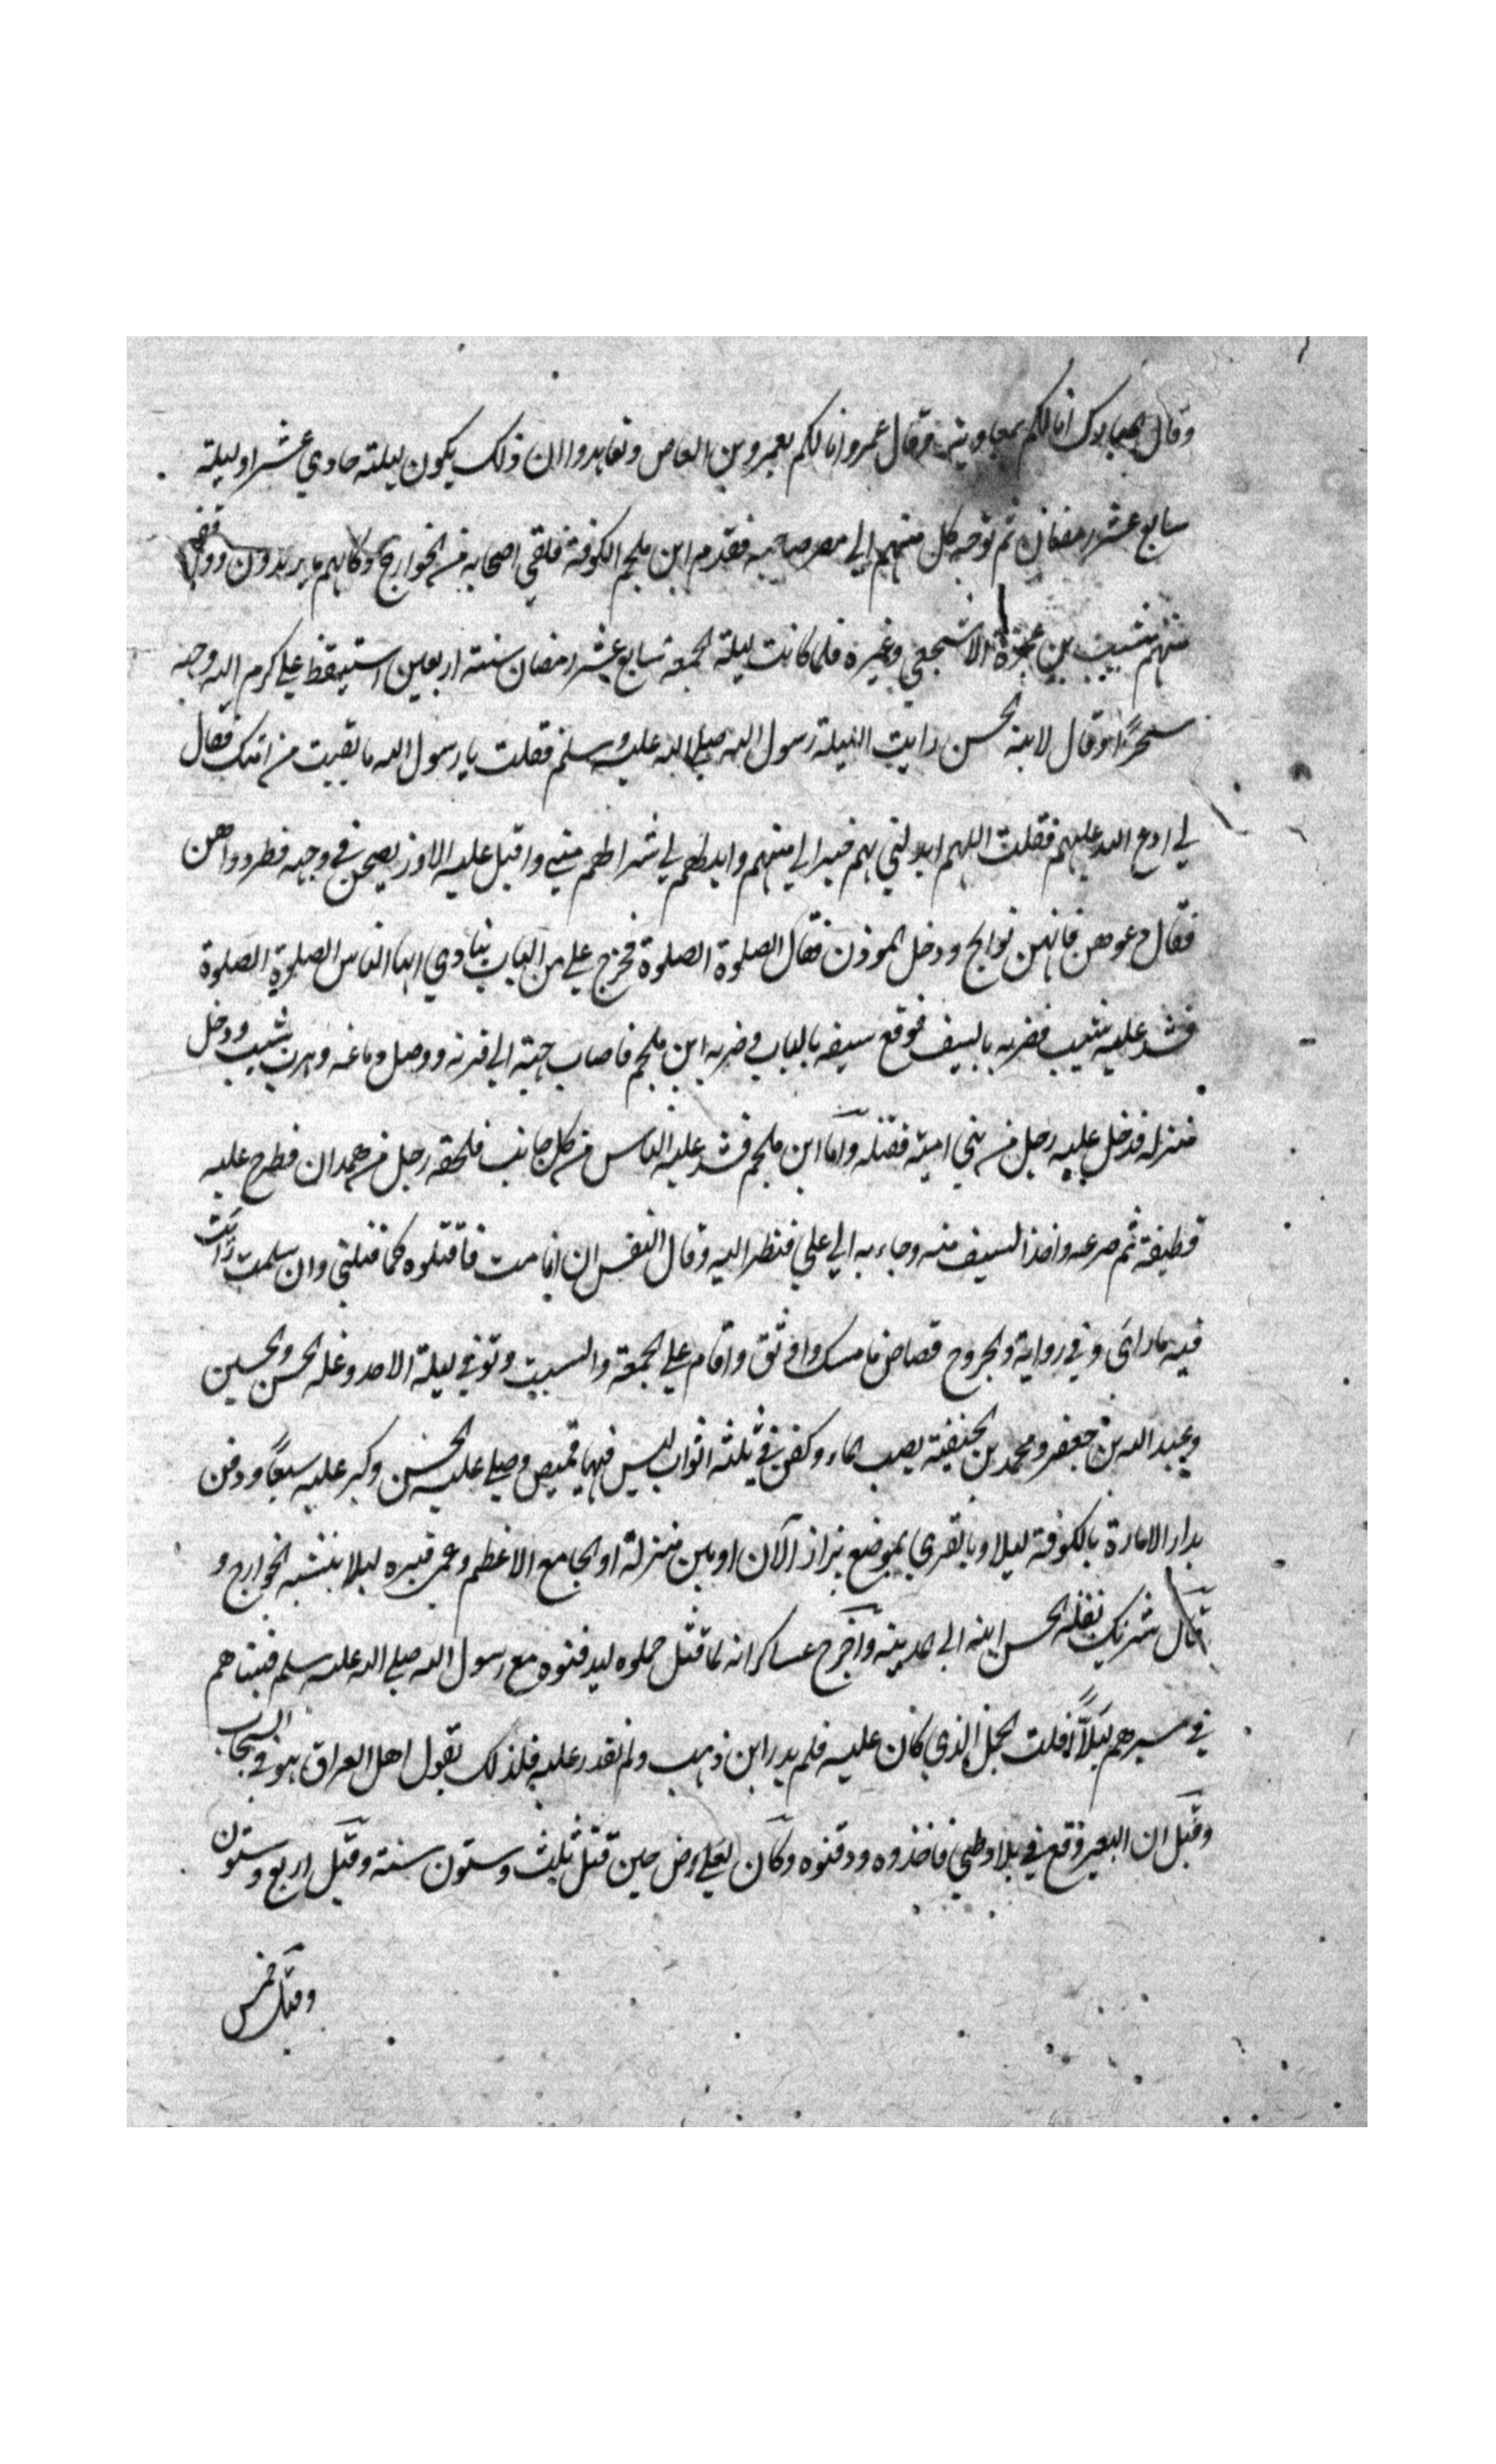 وقال البرك انا لكم بمعاوية وقال عمرو انا لكم بعمرو بن العاص وتعاهدوا ان ذلك يكون ليلة حادي عشر او ليلة
سابع عشر رمضان ثم توجه كل منهم الى مصر صاحبه فقدم ابن ملجم الكوفة فلقي اصحابه من الخوارج وكاتمهم ما يريدون ووافقه
منهم شبيب بن عجرة الاشجعي وغيره فلما كانت ليلة الجمعة سابع عشر رمضان سنة اربعين استيقظ علي كرم الله وجهه
سحرًا وقال لابنه الحسن رايت الليلة رسول الله صلى الله عليه وسلم فقلت يا رسول الله ما لقيت من امتك فقال
لي ادع الله عليهم فقلت اللهم ابدلني بهم خيرا لي منهم وابدلهم بي شرا لهم مني واقبل عليه الاوز يصحن في وجهه فطردوهن
فقال دعوهن فانهن نوايح ودخل الموذن فقال الصلوة الصلوة فخرج علي من الباب ينادي ايها الناس الصلوة الصلوة
فشد عليه شبيب فضربه بالسيف فوقع سيفه بالباب وضربه ابن ملجم فاصاب جبهته الى قرنه ووصل دماغه وهرب شبيب ودخل
منزله فدخل عليه رجل من بني امية فقتله واما ابن ملجم فشد عليه الناس من كل جانب فلحقه رجل من همدان فطرح عليه
قطيفة ثم صرعه واخذ السيف منه وجاء به الى علي فنظر اليه وقال النفس ان انا مت فاقتلوه كما قتلني وان سلمت رايت
فيه ما رائي وفي رواية والجروح قصاص فامسك واوثق واقام علي الجمعة والسبت وتوفي ليلة الاحد وغسله الحسن والحسين
وعبد الله بن جعفر ومحمد بن الحنفية يصب الماء وكفن في ثلثة اثواب ليس فيها قميص وصلى عليه الحسن وكبر عليه سبعًا ودفن
بدار الامارة بالكوفة ليلا او بالغري بموضع يزار الآن او بين منزله او الجامع الاعظم وعمي قبره ليلا ينبشه الخوارج و
قال شريك نقله الحسن ابنه الى المدينة واخرج عساكر انه لما قتل حملوه ليدفنوه مع رسول الله صلى الله عليه وسلم فبينا هم
في سيرهم ليلاً اذ فلت الجمل الذي كان عليه فلم يدر اين ذهب ولم يقدر عليه فلذلك يقول اهل العراق هو في السحاب
وقيل ان البعير وقع في بلاد طي فاخذوه ودفنوه وكان لعلي رض حين قتل ثلث وستون سنة وقيل اربع وستون
وقيل خمس